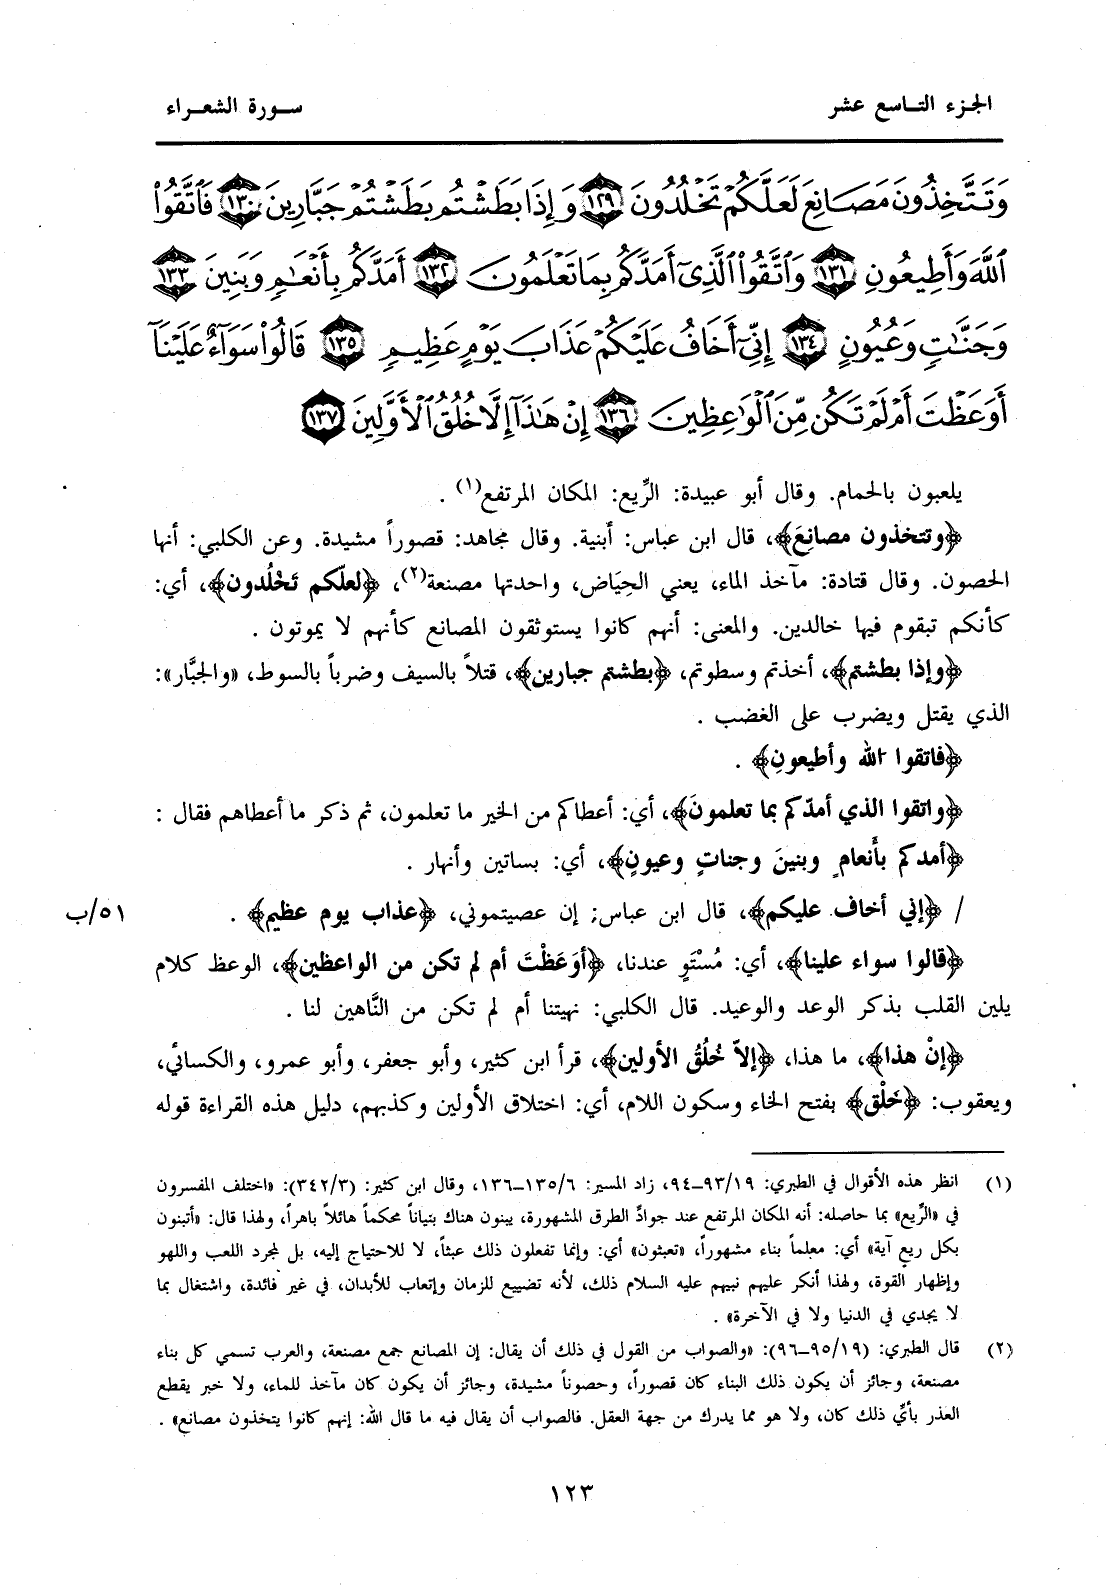 الجزء التاسع عشر
سورة الشعراء
وَتَتَّخِذُونَ مَصَانِعَ لَعَلَّكُمْ تَخْلُدُونَ ١٢٩ وَإِذَا بَطَشْتُم بَطَشْتُمْ جَبَّارِينَ ١٣٠ فَاتَّقُوا
اللَّهَ وَأَطِيعُونِ ١٣١ وَاتَّقُوا الَّذِي أَمَدَّكُم بِمَا تَعْلَمُونَ ١٣٢ أَمَدَّكُم بِأَنْعَامٍ وَبَنِينَ ١٣٣
وَجَنَّاتٍ وَعُيُونٍ ١٣٤ إِنِّي أَخَافُ عَلَيْكُمْ عَذَابَ يَوْمٍ عَظِيمٍ ١٣٥ قَالُوا سَوَاءٌ عَلَيْنَا
أَوَعَظْتَ أَمْ لَمْ تَكُن مِّنَ الْوَاعِظِينَ ١٣٦ إِنْ هَٰذَا إِلَّا خُلُقُ الْأَوَّلِينَ ١٣٧
يلعبون بالحمام. وقال أبو عبيدة: الرِّيع: المكان المرتفع(١) .
﴿وتتخذون مصانِعَ﴾، قال ابن عباس: أبنية. وقال مجاهد: قصوراً مشيدة. وعن الكلبي: أنها
الحصون. وقال قتادة: مآخذ الماء، يعني الحِيَاض، واحدتها مصنعة(٢)، ﴿لعلّكم تَخْلُدون﴾، أي:
كأنكم تبقوم فيها خالدين. والمعنى: أنهم كانوا يستوثقون المصانع كأنهم لا يموتون .
﴿وإذا بطشتم﴾، أخذتم وسطوتم، ﴿بطشتم جبارين﴾، قتلاً بالسيف وضرباً بالسوط، «والجبَّار»:
الذي يقتل ويضرب على الغضب .
﴿فاتقوا الله وأطيعونِ﴾ .
﴿واتقوا الذي أمدّكم بما تعلمونَ﴾، أي: أعطاكم من الخير ما تعلمون، ثم ذكر ما أعطاهم فقال :
﴿أمدكم بأَنعامٍ وبنينَ وجناتٍ وعيونٍ﴾، أي: بساتين وأنهار .
/ ﴿إني أخاف عليكم﴾، قال ابن عباس: إن عصيتموني، ﴿عذاب يوم عظيم﴾ .
٥١/ب
﴿قالوا سواء علينا﴾، أي: مُسْتَوٍ عندنا، ﴿أوَعَظْتَ أم لم تكن من الواعظين﴾، الوعظ كلام
يلين القلب بذكر الوعد والوعيد. قال الكلبي: نهيتنا أم لم تكن من النَّاهين لنا .
﴿إنْ هذا﴾، ما هذا، ﴿إلاّ خُلُقُ الأولين﴾، قرأ ابن كثير، وأبو جعفر، وأبو عمرو، والكسائي،
ويعقوب: ﴿خَلْق﴾ بفتح الخاء وسكون اللام، أي: اختلاق الأولين وكذبهم، دليل هذه القراءة قوله
(١) انظر هذه الأقوال في الطبري: ٩٣/١٩ـ٩٤، زاد المسير: ١٣٥/٦ـ١٣٦، وقال ابن كثير: (٣٤٢/٣): «اختلف المفسرون
في «الرِّيع» بما حاصله: أنه المكان المرتفع عند جوادِّ الطرق المشهورة، يبنون هناك بنياناً محكماً هائلاً باهراً، ولهذا قال: «أتبنون
بكل ريع آية» أي: معلماً بناء مشهوراً، «تعبثون» أي: وإنما تفعلون ذلك عبثاً، لا للاحتياج إليه، بل لمجرد اللعب واللهو
وإظهار القوة، ولهذا أنكر عليهم نبيهم عليه السلام ذلك، لأنه تضييع للزمان وإتعاب للأبدان، في غير فائدة، واشتغال بما
لا يجدي في الدنيا ولا في الآخرة» .
(٢) قال الطبري: (٩٥/١٩ـ٩٦): «والصواب من القول في ذلك أن يقال: إن المصانع جمع مصنعة، والعرب تسمي كل بناء
مصنعة، وجائز أن يكون ذلك البناء كان قصوراً، وحصوناً مشيدة، وجائز أن يكون كان مآخذ للماء، ولا خبر يقطع
العذر بأيِّ ذلك كان، ولا هو مما يدرك من جهة العقل. فالصواب أن يقال فيه ما قال الله: إنهم كانوا يتخذون مصانع» .
١٢٣